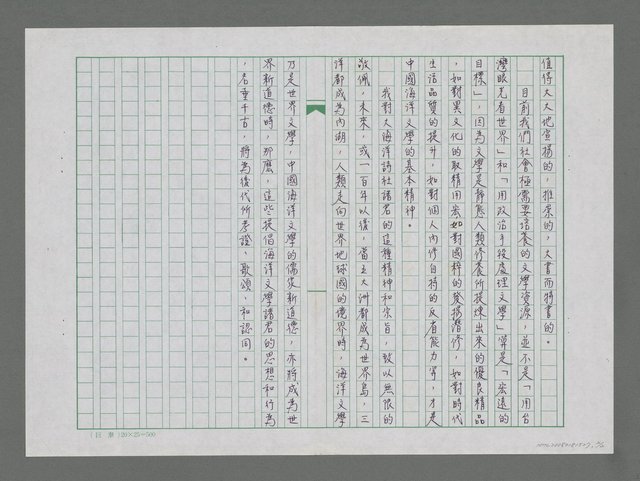 值得大大地宣揚的，推崇的，大書而特書的。
目前我們社會極需要培養的文學資源，並不是「用台
灣眼光看世界」和「用政治手段處理文學」算是「宏遠的
目標」，因為文學是靜態人類修養所提煉出來的優良精品
，如對異文化的取精用宏如對國粹的發揚潛修，如對時代
生活品質的提升，如對個人內修自持的反省能力等，才是
中國海洋文學的基本精神。
我對大海洋詩社諸君的這種精神和宗旨，致以無限的
敬佩，未來，或一百年以後，當五大洲都成為世界島，三
洋都成為內湖，人類走向世界地球國的境界時，海洋文學
乃是世界文學，中國海洋文學的儒俠新道德，亦將成為世
界新道德時，那麼，這些提倡海洋文學諸君的思想和行為
，名垂千古，將為後代所考證、歌頌、和認同。
20×25=500